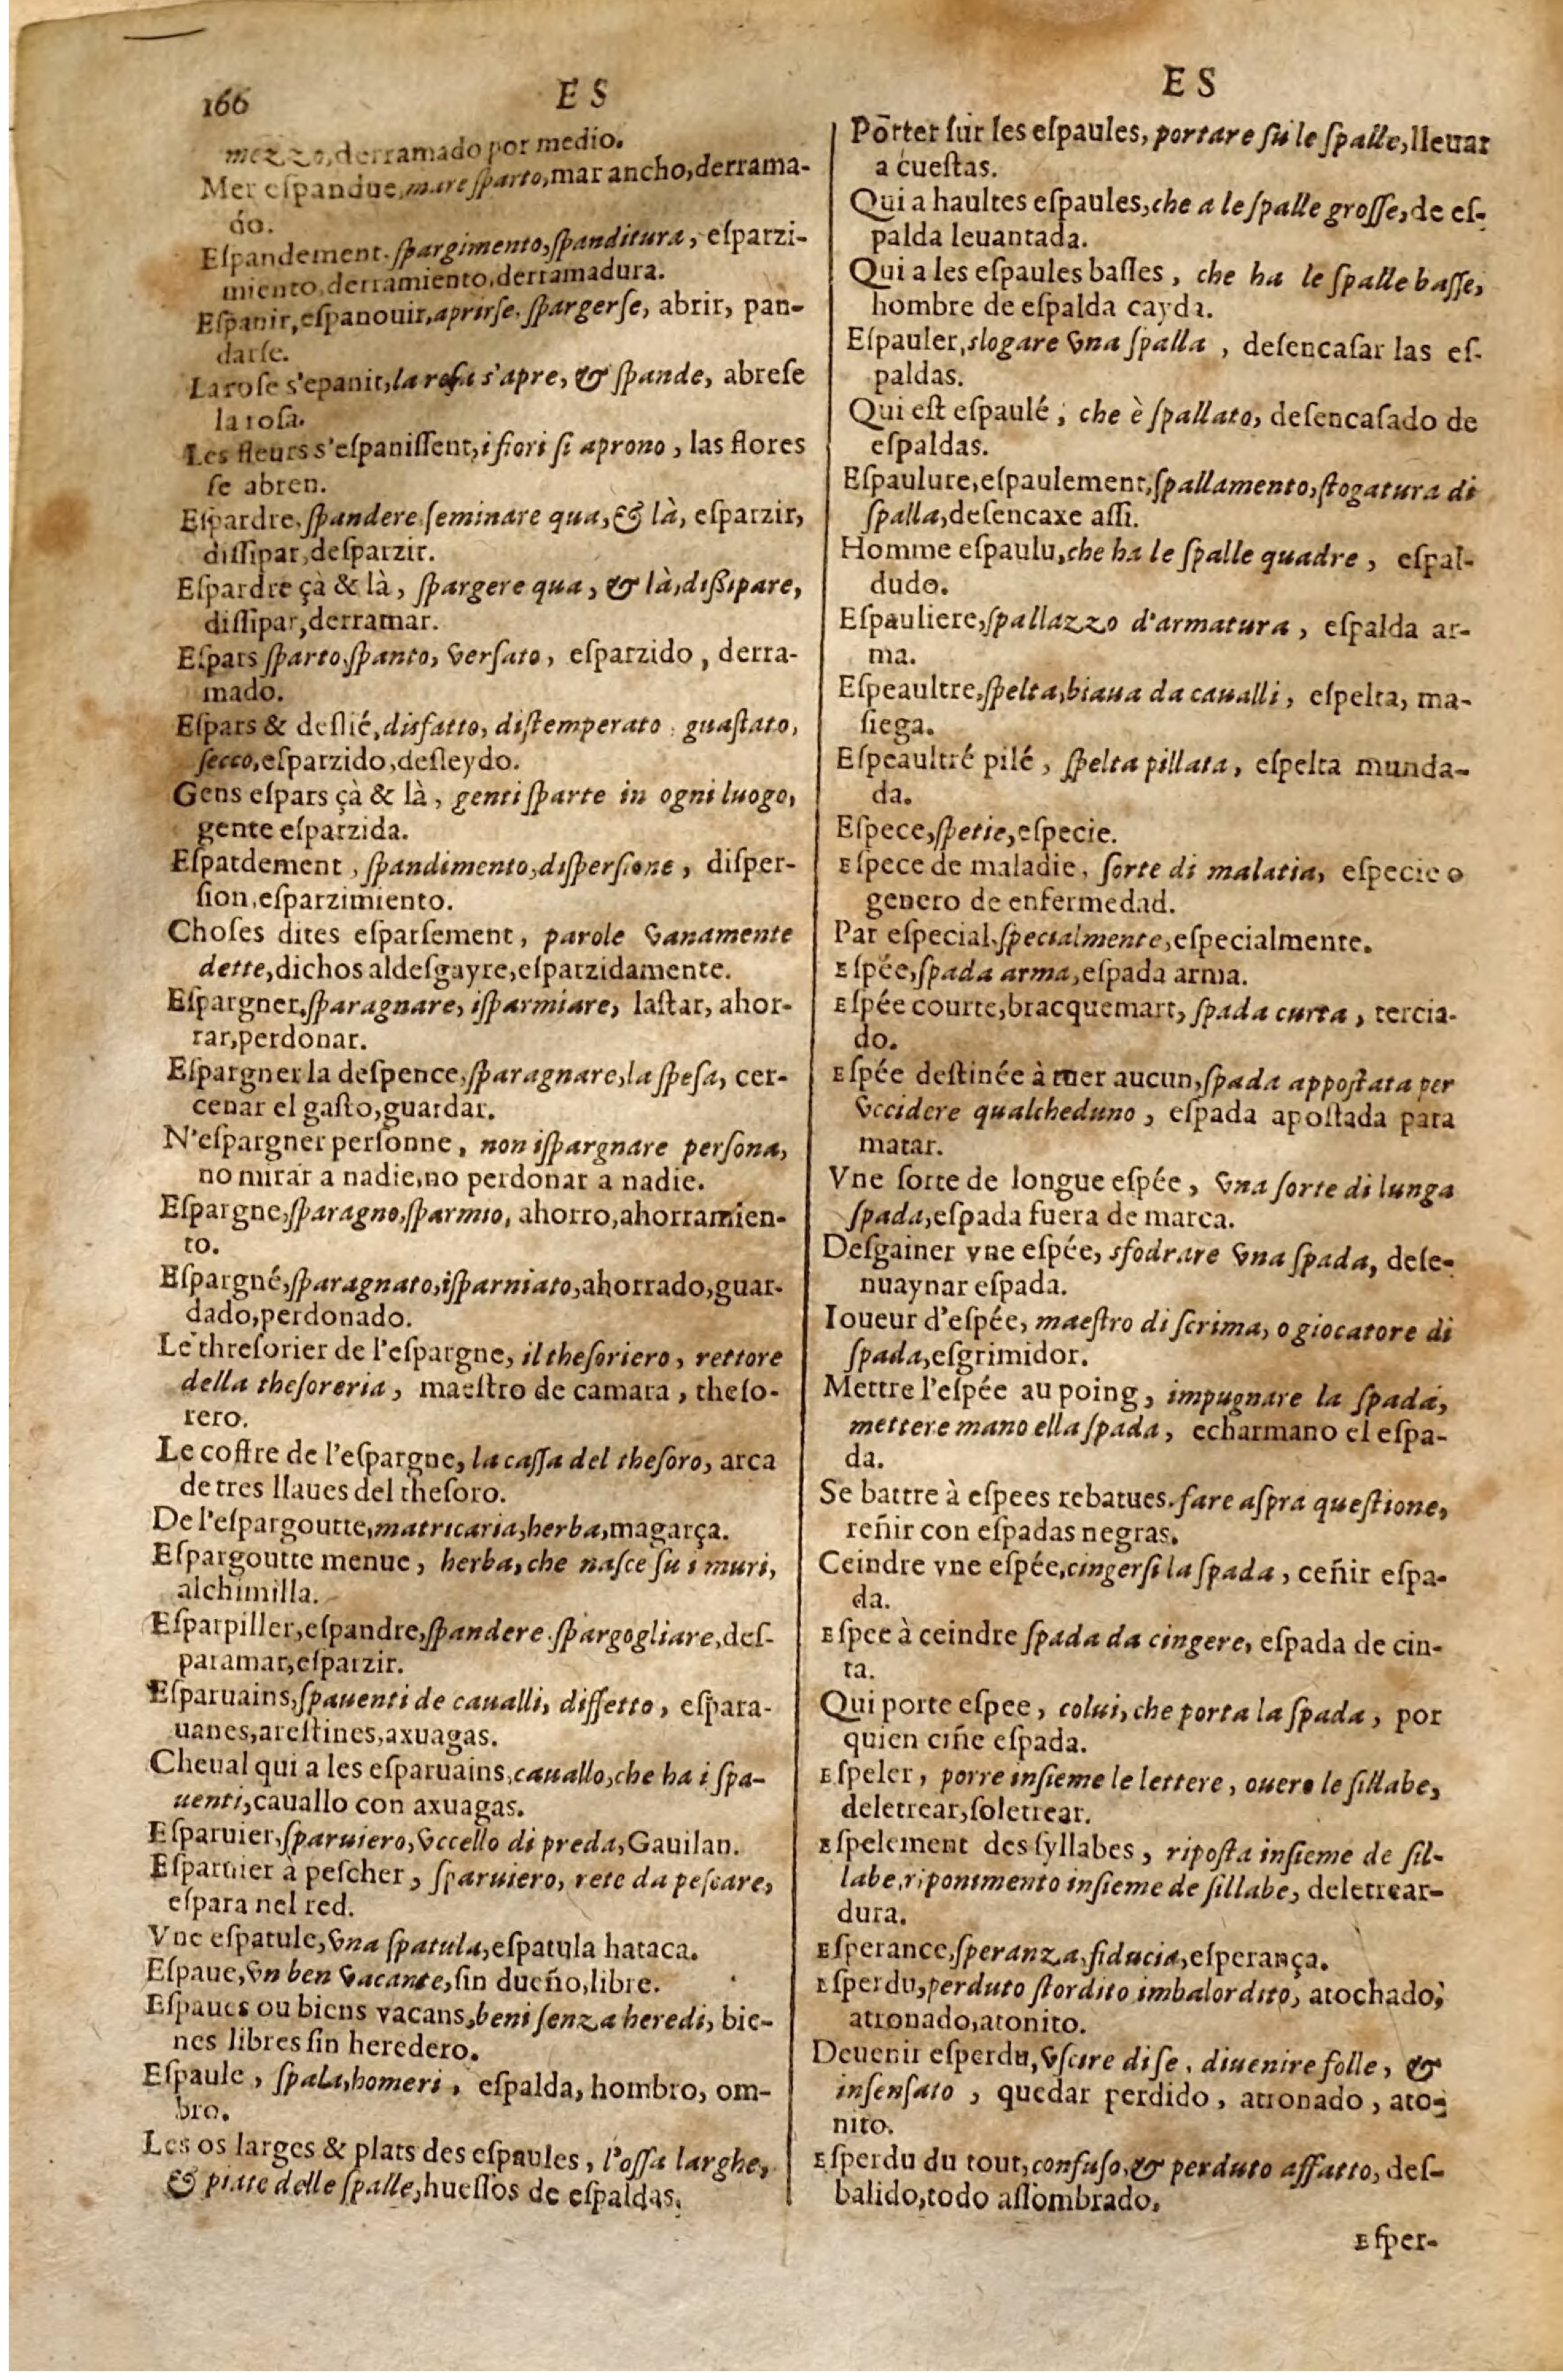 166
E S
mezzo, derramado por medio.
Mer eſpandue, mare ſparto, mar ancho, derrama-
do.
Eſpandement. ſpargimento, ſpanditura, eſparzi-
miento, derramiento, derramadura.
Eſpanir, eſpanouir, aprirſe. ſpargerſe, abrir, pan-
darſe.
La roſe s'epanit, la roſa s'apre, & ſpande, abreſe
la roſa.
Les fleurs s'eſpaniſſent, i fiori ſi aprono, las flores
ſe abren.
Eſpardre, ſpandere. ſeminare qua, & là, eſparzir,
diſſipar, deſparzir.
Eſpardre çà & là, ſpargere qua, & là, diſſipare,
diſſipar, derramar.
Eſpars ſparto, ſpanto, verſato, eſparzido, derra-
mado.
Eſpars & deſlié, disfatto, diſtemperato, guaſtato,
ſecco, eſparzido, deſleydo.
Gens eſpars çà & là, genti ſparte in ogni luogo,
gente eſparzida.
Eſpardement, ſpandimento, diſperſione, diſper-
ſion, eſparzimiento.
Choſes dites eſparſement, parole vanamente
dette, dichos aldeſgayre, eſparzidamente.
Eſpargner, ſparagnare, iſparmiare, laſtar, ahor-
rar, perdonar.
Eſpargner la deſpence, ſparagnare, la ſpeſa, cer-
cenar el gaſto, guardar.
N'eſpargner perſonne, non iſpargnare perſona,
no mirar a nadie, no perdonar a nadie.
Eſpargne, ſparagno, ſparmio, ahorro, ahorramien-
to.
Eſpargné, ſparagnato, iſparniato, ahorrado, guar-
dado, perdonado.
Le threſorier de l'eſpargne, il theſoriero, rettore
della theſoreria, maeſtro de camara, theſo-
rero.
Le coffre de l'eſpargne, la caſſa del theſoro, arca
de tres llaues del theſoro.
De l'eſpargoutte, matricaria, herba, magarça.
Eſpargoutte menue, herba, che naſce ſu i muri,
alchimilla.
Eſparpiller, eſpandre, ſpandere. ſpargogliare, deſ-
paramar, eſparzir.
Eſparuains, ſpauenti de caualli, diffetto, eſpara-
uanes, areſtines, axuagas.
Cheual qui a les eſparuains, cauallo, che ha i ſpa-
uenti, cauallo con axuagas.
Eſparuier, ſparuiero, vccello di preda, Gauilan.
Eſparuier à peſcher, ſparuiero, rete da peſcare,
eſpara nel red.
Vne eſpatule, vna ſpatula, eſpatula hataca.
Eſpaue, vn ben vacante, ſin dueño, libre.
Eſpaues ou biens vacans, beni ſenza heredi, bie-
nes libres ſin heredero.
Eſpaule, ſpala, homeri, eſpalda, hombro, om-
bro.
Les os larges & plats des eſpaules, l'oſſa larghe,
& piate delle ſpalle, hueſſos de eſpaldas.
E S
Porter ſur les eſpaules, portare ſù le ſpalle, lleuar
a cueſtas.
Qui a haultes eſpaules, che a le ſpalle groſſe, de eſ-
palda leuantada.
Qui a les eſpaules baſſes, che ha le ſpalle baſſe,
hombre de eſpalda cayda.
Eſpauler, slogare vna ſpalla, deſencaſar las eſ-
paldas.
Qui eſt eſpaulé, che è ſpallato, deſencaſado de
eſpaldas.
Eſpaulure, eſpaulement, ſpallamento, ſtogatura di
ſpalla, deſencaxe aſſi.
Homme eſpaulu, che ha le ſpalle quadre, eſpal-
dudo.
Eſpauliere, ſpallazzo d'armatura, eſpalda ar-
ma.
Eſpeaultre, ſpelta, biaua da caualli, eſpelta, ma-
ſiega.
Eſpeaultré pilé, ſpelta pillata, eſpelta munda-
da.
Eſpece, ſpetie, eſpecie.
Eſpece de maladie, ſorte di malatia, eſpecie o
genero de enfermedad.
Par eſpecial, ſpecialmente, eſpecialmente.
Eſpée, ſpada arma, eſpada arma.
Eſpée courte, bracquemart, ſpada curta, tercia-
do.
Eſpée deſtinée à tuer aucun, ſpada appoſtata per
vccidere qualcheduno, eſpada apoſtada para
matar.
Vne ſorte de longue eſpée, vna ſorte di lunga
ſpada, eſpada fuera de marca.
Deſgainer vne eſpée, sfodrare vna ſpada, deſe-
nuaynar eſpada.
Ioueur d'eſpée, maeſtro di ſcrima, o giocatore di
ſpada, eſgrimidor.
Mettre l'eſpée au poing, impugnare la ſpada,
mettere mano ella ſpada, echarmano el eſpa-
da.
Se battre à eſpees rebatues. fare aſpra queſtione,
reñir con eſpadas negras.
Ceindre vne eſpée, cingerſi la ſpada, ceñir eſpa-
da.
Eſpee à ceindre ſpada da cingere, eſpada de cin-
ta.
Qui porte eſpee, colui, che porta la ſpada, por
quien ciñe eſpada.
Eſpeler, porre inſieme le lettere, ouero le ſillabe,
deletrear, ſoletrear.
Eſpelement des ſyllabes, ripoſta inſieme de ſil-
labe, riponimento inſieme de ſillabe, deletrear-
dura.
Eſperance, ſperanza, fiducia, eſperança.
Eſperdu, perduto ſtordito imbalordito, atochado,
atronado, atonito.
Deuenir eſperdu, vſcire di ſe, diuenire folle, &
inſenſato, quedar perdido, atronado, ato-
nito.
Eſperdu du tout, confuſo, & perduto affatto, deſ-
balido, todo aſſombrado.
Eſper-